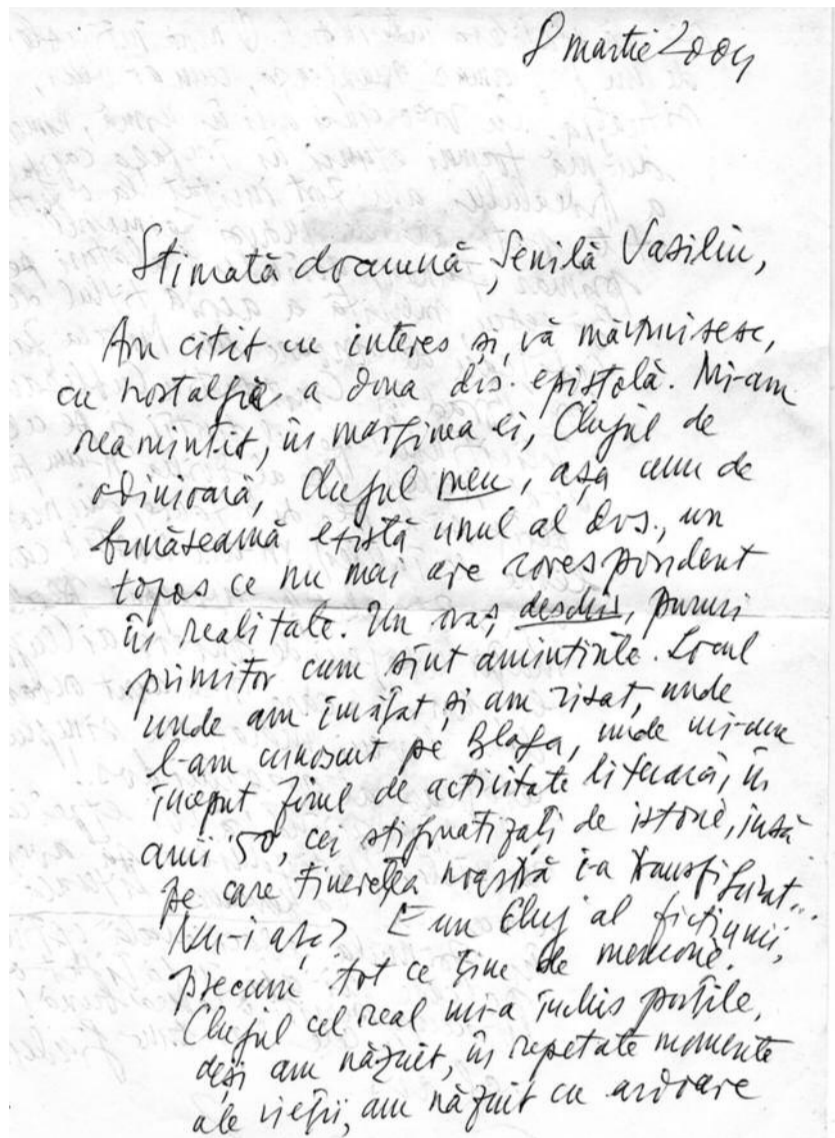 8 martie 2004
Stimată doamnă Șenilă Vasiliu,
Am citit cu interes și, vă mărturisesc,
cu nostalgie a doua dvs. epistolă. Mi-am
reamintit, în marginea ei, Clujul de
odinioară, Clujul meu, așa cum de
bunăseamă există unul al dvs., un
topos ce nu mai are corespondent
în realitate. Un oraș deschis, pururi
primitor cum sînt amintirile. Locul
unde am învățat și am visat, unde
l-am cunoscut pe Blaga, unde mi-am
început firul de activitate literară, în
anii '50, cei stigmatizați de istorie, însă
pe care tinerețea noastră i-a transfigurat...
Nu-i așa? E un Cluj al ficțiunii,
precum tot ce ține de memorie.
Clujul cel real mi-a închis porțile,
deși am năzuit, în repetate momente
ale vieții, am năzuit cu ardoare